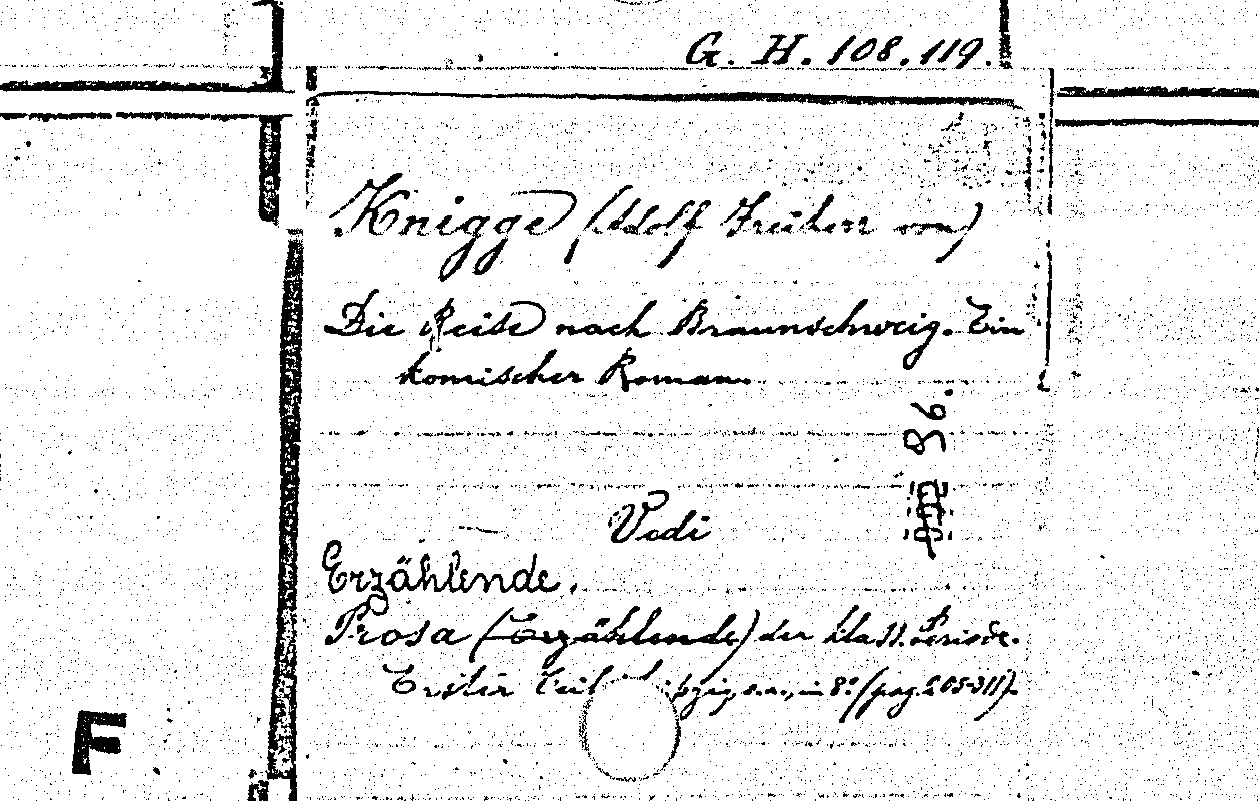 G. H. 108.119.
Knigge (Adolf Freiherr von)
Die Reise nach Braunschweig. Ein
komischer Roman.
86.
Vedi
Erzählende.
Prosa (Erzählende) der klass. Periode.
Erster Teil in 8° (pag. 205-311).
F